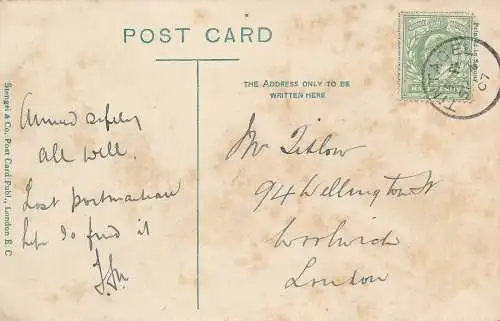 POST CARD
THE ADDRESS ONLY TO BE
WRITTEN HERE
Stengel & Co. Post Card Publ., London E. C
Arrived safely
All well.
Lost portmanteau
hope to find it
Mr Titlow
94 Wellington St
Woolwich
London
TINTAGEL
07